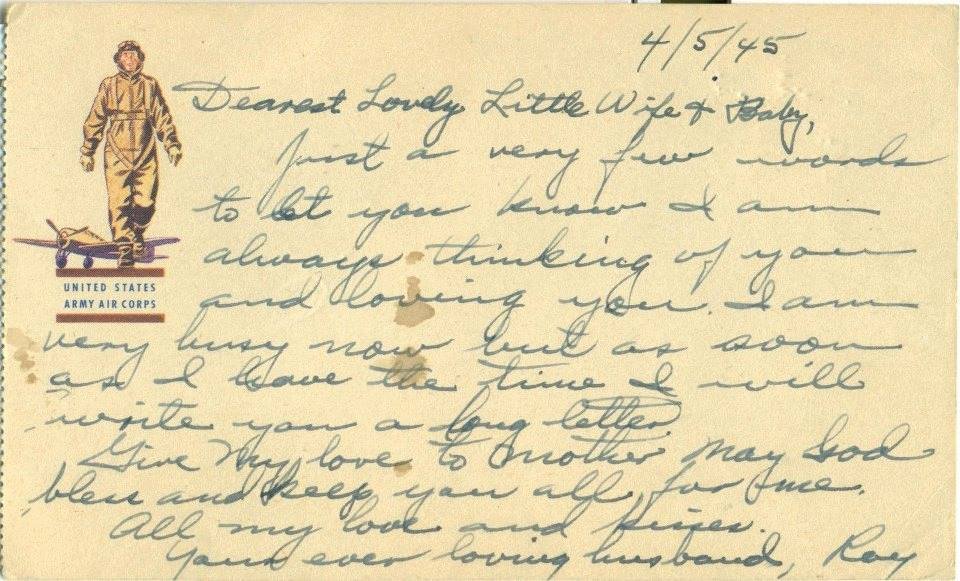 4/5/45
Dearest Lovely Little Wife & Baby,
Just a very few words
to let you know I am
always thinking of you
and loving you. I am
very busy now but as soon
as I have the time I will
write you a long letter.
Give My love to Mother May God
bless and keep you all, for me.
All my love and kisses.
Your ever loving husband, Ray
UNITED STATES
ARMY AIR CORPS